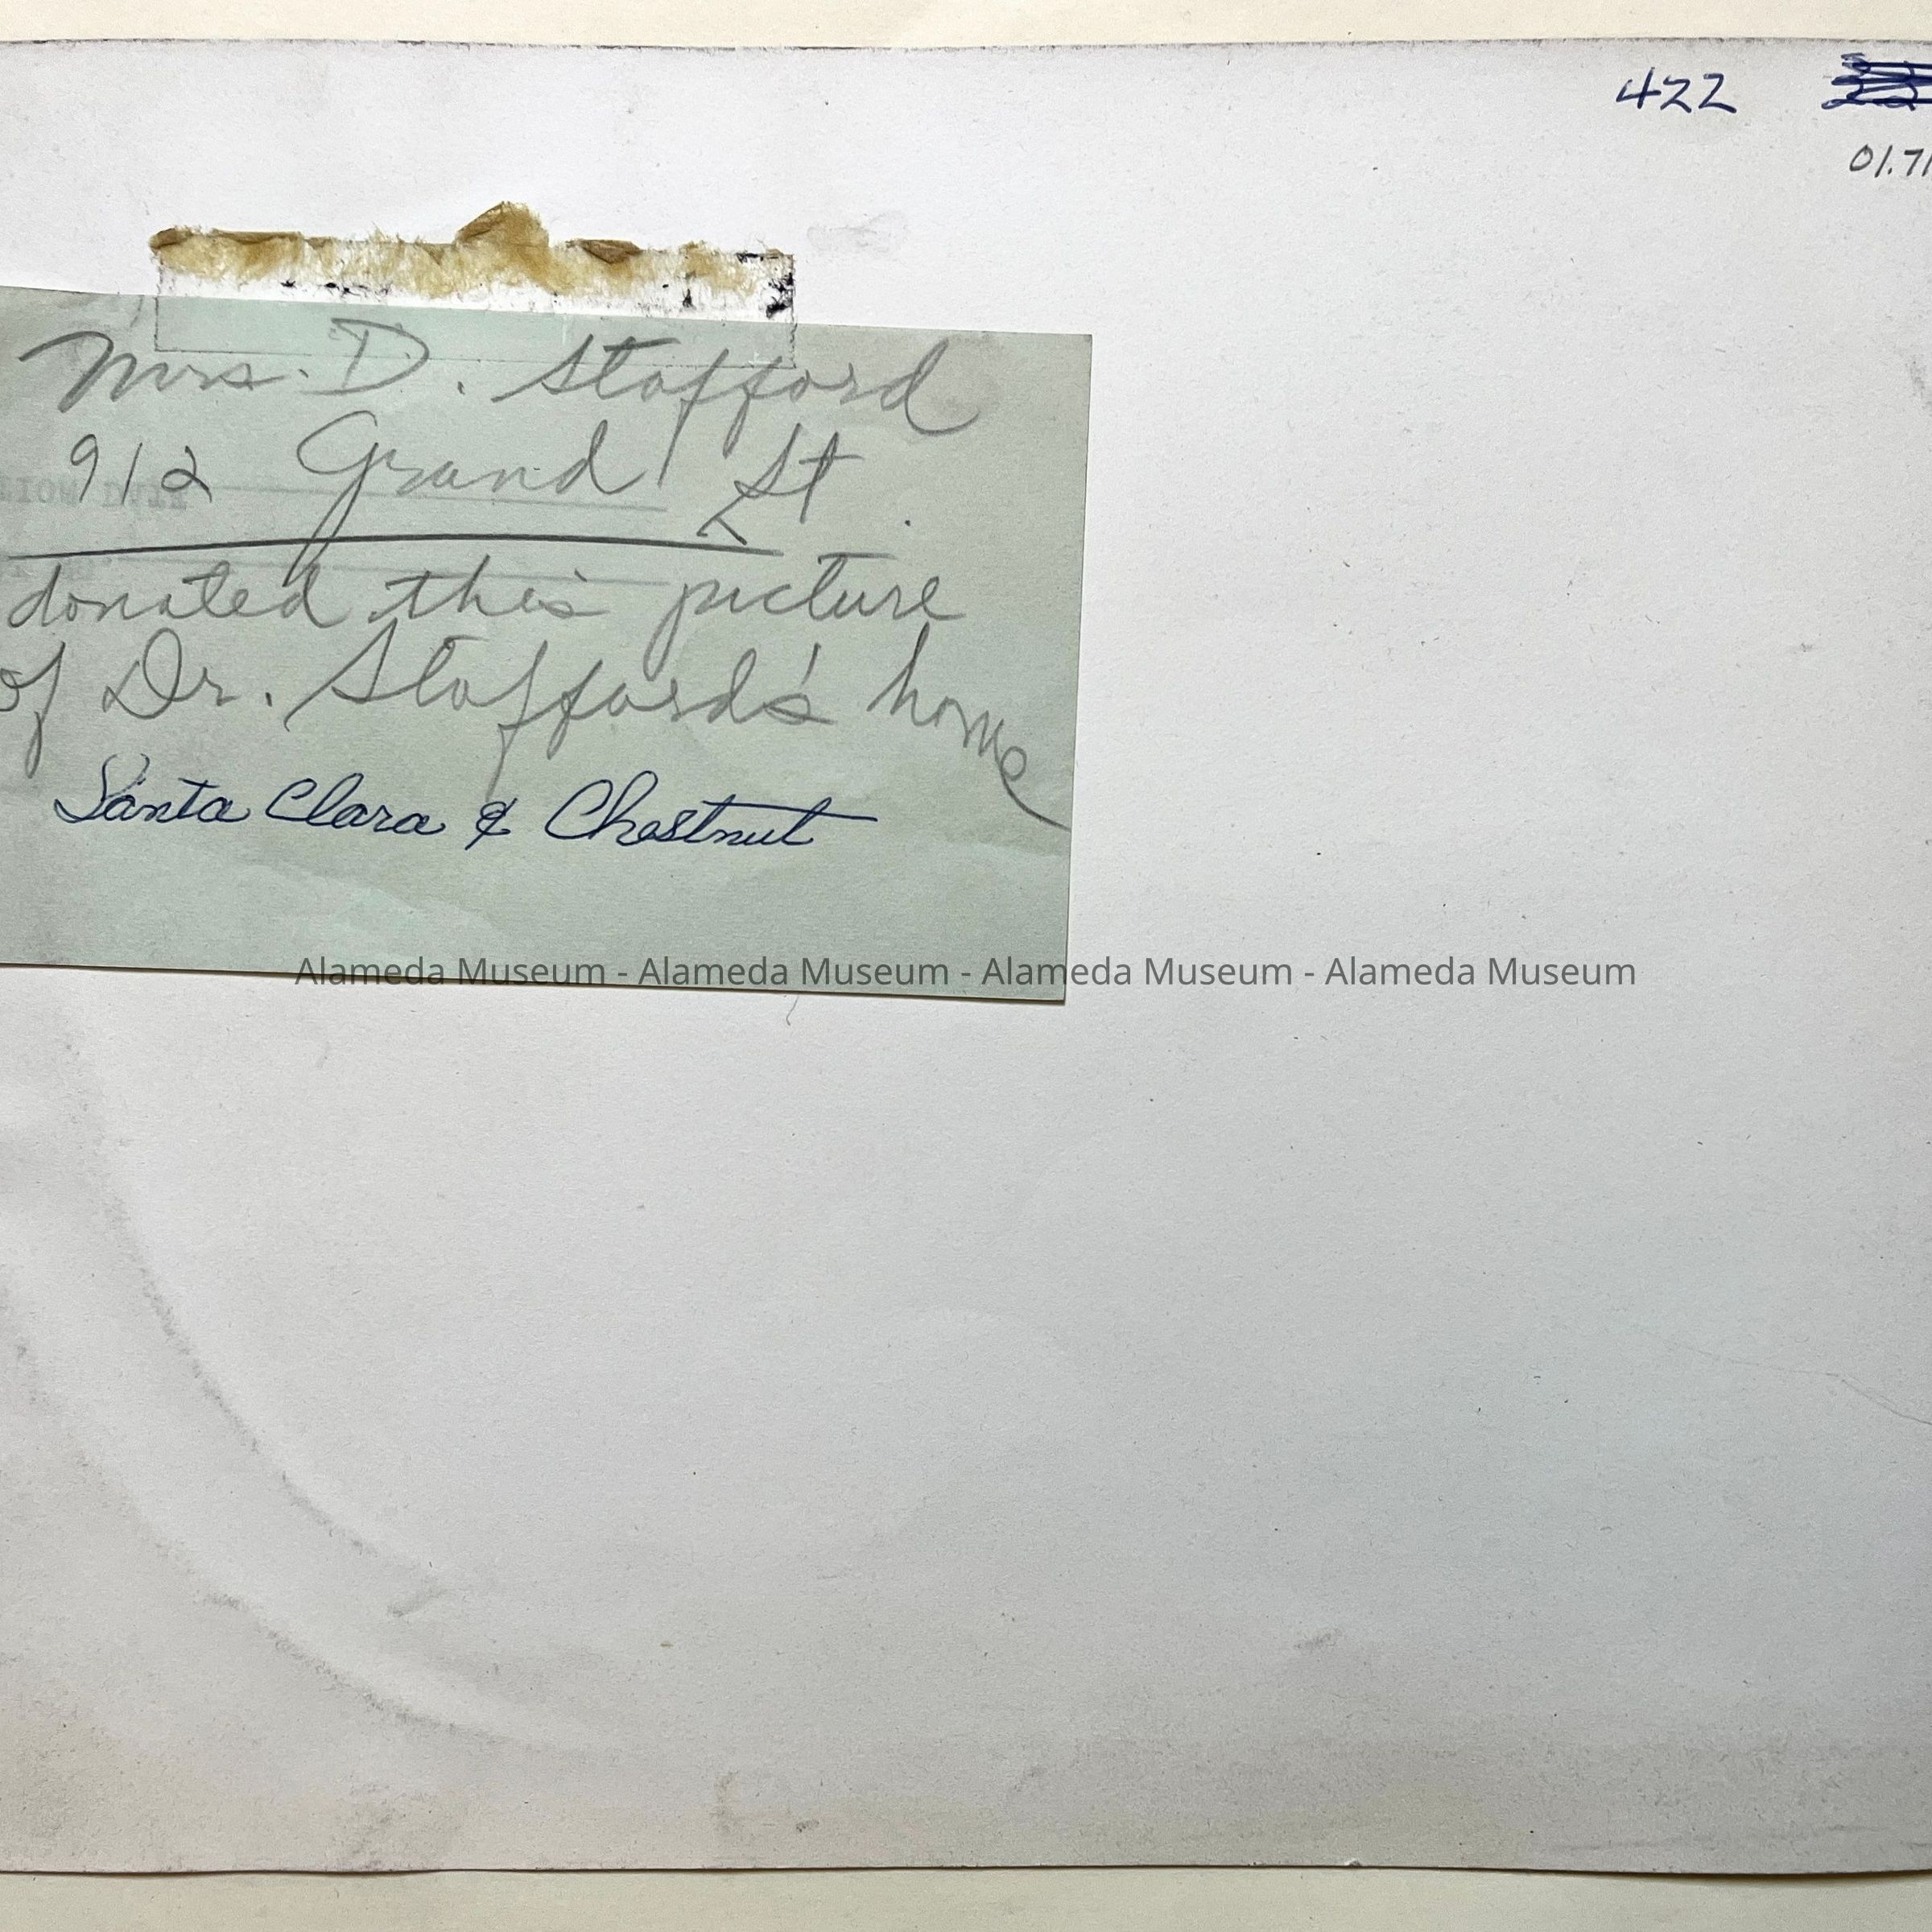 422
01.71
Mrs. D. Stafford
912 Grand St.
donated this picture
of Dr. Stafford's home
Santa Clara & Chestnut
Alameda Museum - Alameda Museum - Alameda Museum - Alameda Museum